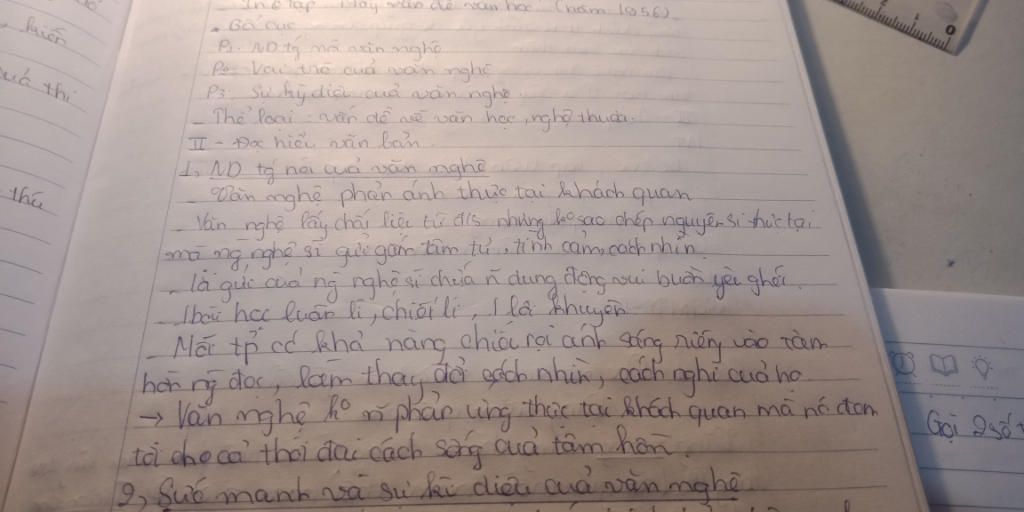 kiến
quá thi
thú
In & tập Mấy vấn đề văn học (năm 1956)
. Bố cục
P1. ND tg mà văn nghệ
P2. Vai trò cuả văn nghệ
P3. Sự kỳ diệu cuả văn nghệ.
- Thể loại : vấn đề về văn học, nghệ thuật.
II - Đọc hiểu văn bản.
1, ND tg nói cuả văn nghệ
- Văn nghệ phản ánh thực tại khách quan
- Văn nghệ lấy chất liệu từ đ/s nhưng ko sao chép nguyên si thực tại
mà ng nghệ sĩ gửi gắm tâm tư, tình cảm, cách nhìn
- là gửi cuả ng nghệ sĩ chứa n dung động vui buồn yêu ghét.
- 1 bài học luân lí, triết lí, 1 lời khuyên
- Mỗi tp có khả năng chiếu rọi ánh sáng riêng vào tâm
hồn ng đọc, làm thay đổi cách nhìn, cách nghĩ cuả họ
→ Văn nghệ ko phản ứng thực tại khách quan mà nó đem
tới cho cả thời đại cách sống cuả tâm hồn.
2, Sức mạnh và sự kì diệu cuả văn nghệ
0
Gọi 2 số